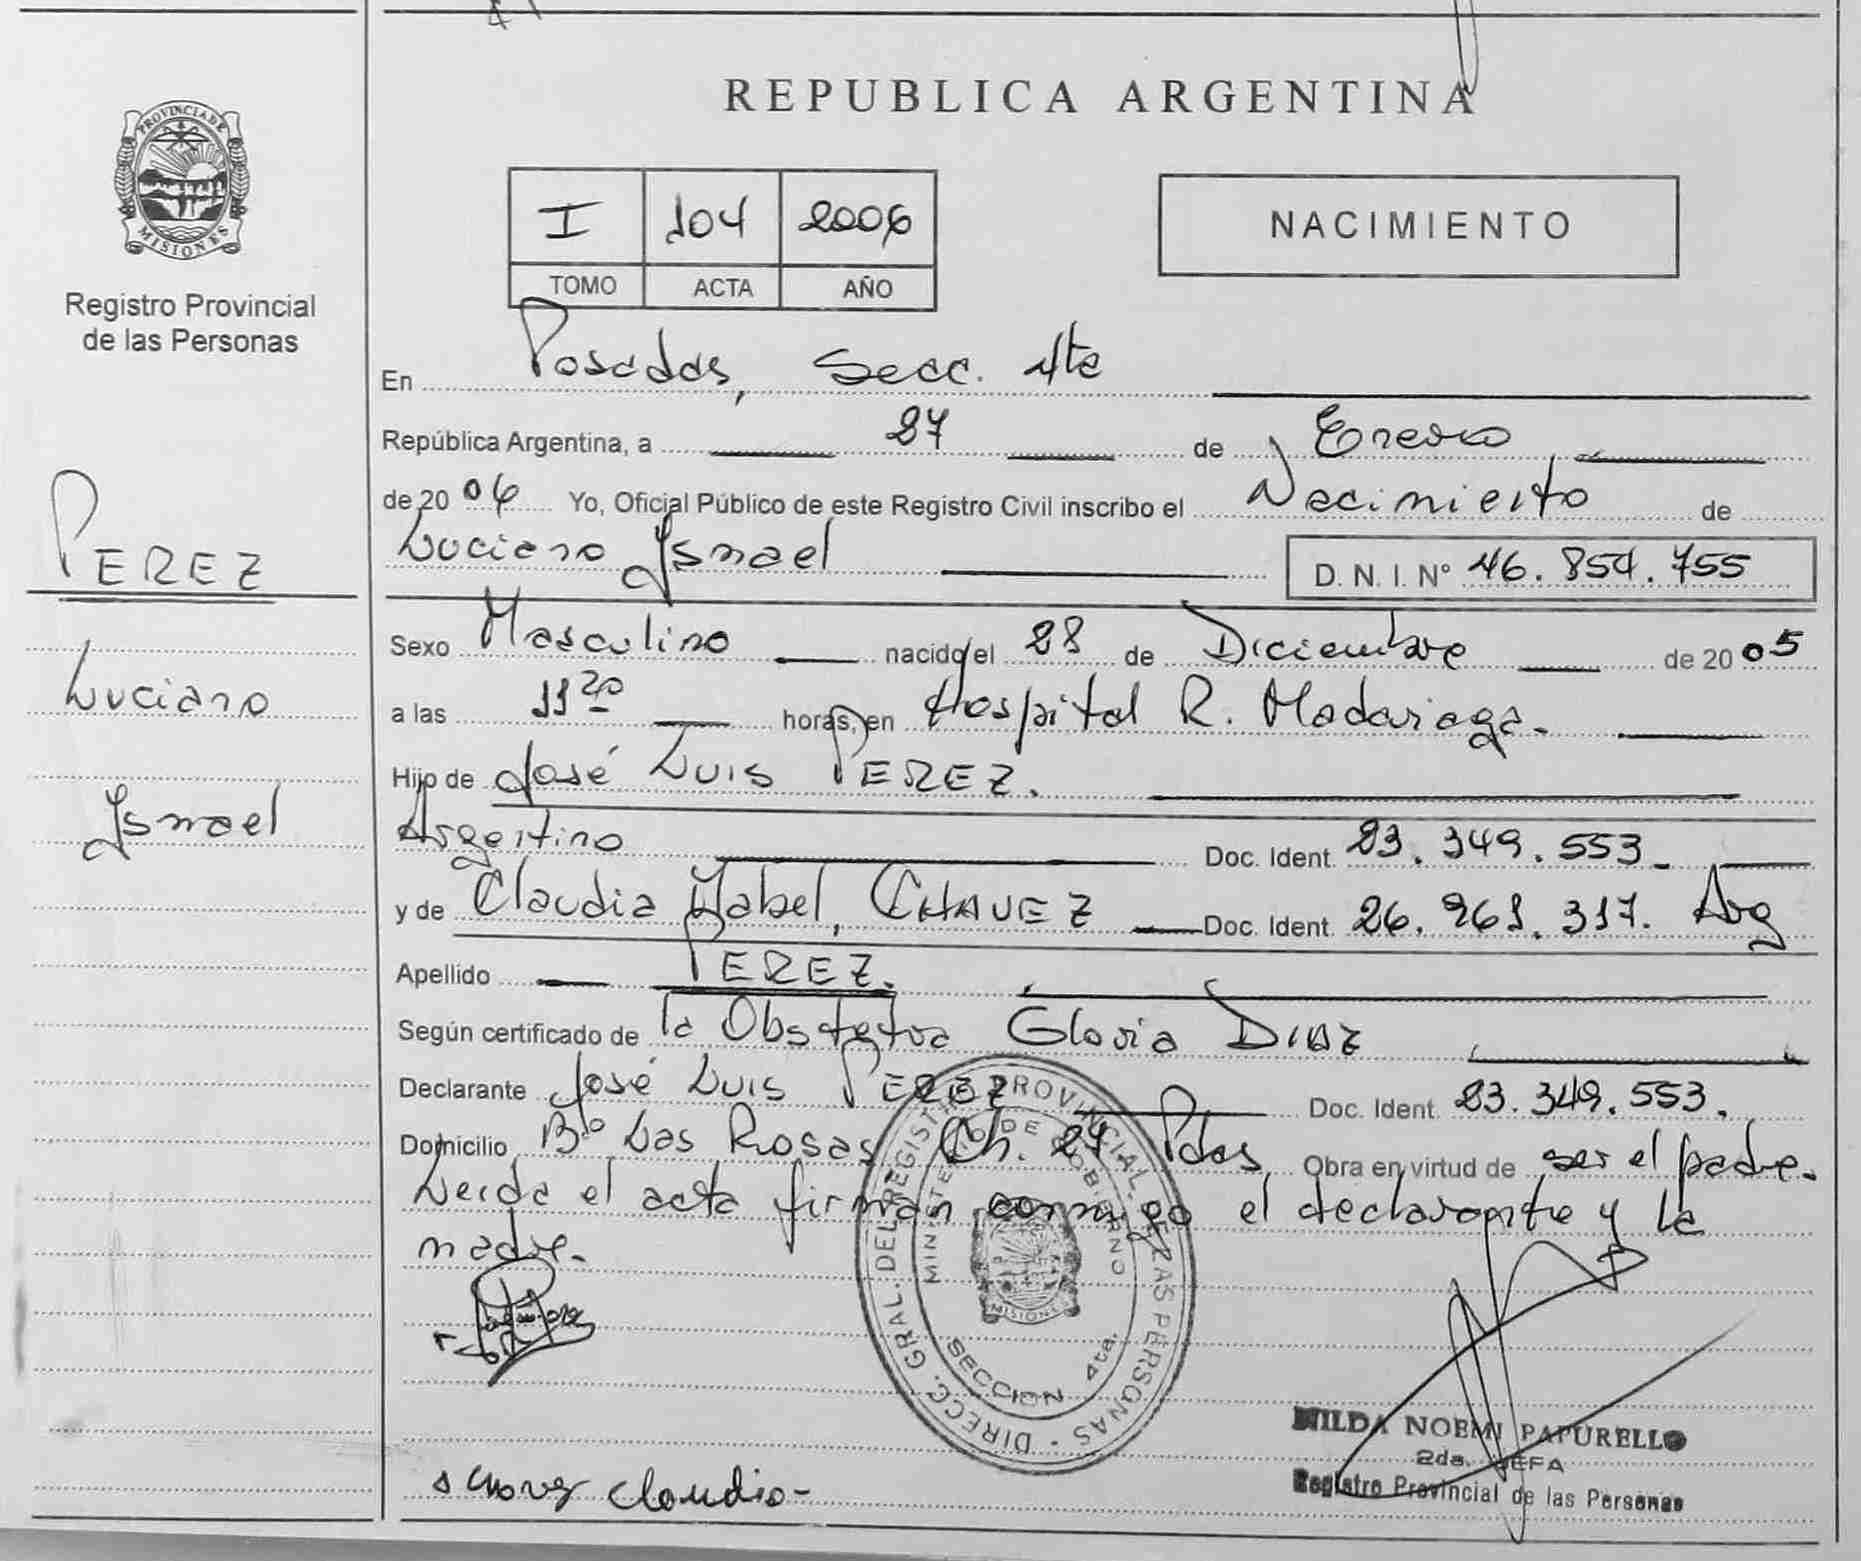 PROVINCIA DE
MISIONES
Registro Provincial
de las Personas
PEREZ
Luciano
Ismael
REPUBLICA ARGENTINA
I 104 2006
TOMO ACTA AÑO
NACIMIENTO
En Posadas, Secc. 4ta
República Argentina, a 27 de Enero
de 20 06 Yo, Oficial Público de este Registro Civil inscribo el Nacimiento de
Luciano Ismael D. N. I. Nº 46.854.755
Sexo Masculino nacido el 28 de Diciembre de 20 05
a las 11 20 horas, en Hospital R. Madariaga.
Hijo de José Luis PEREZ.
Argentino Doc. Ident. 23.349.553.
y de Claudia Mabel, CHAVEZ Doc. Ident. 26.261.317. Arg
Apellido PEREZ.
Según certificado de la Obstetra Gloria DIAZ
Declarante José Luis PEREZ Doc. Ident. 23.349.553.
Domicilio Bº Las Rosas Ch. 27 Pdas Obra en virtud de ser el padre.
Leida el acta firman conmigo el declarante y la
madre.
DIRECC. GRAL. DEL REGISTRO PROVINCIAL DE LAS PERSONAS
MINISTERIO DE GOBIERNO
MISIONES
SECCION 4ta.
HILDA NOEMI PAPURELLO
2da. JEFA
Registro Provincial de las Personas
Claudia